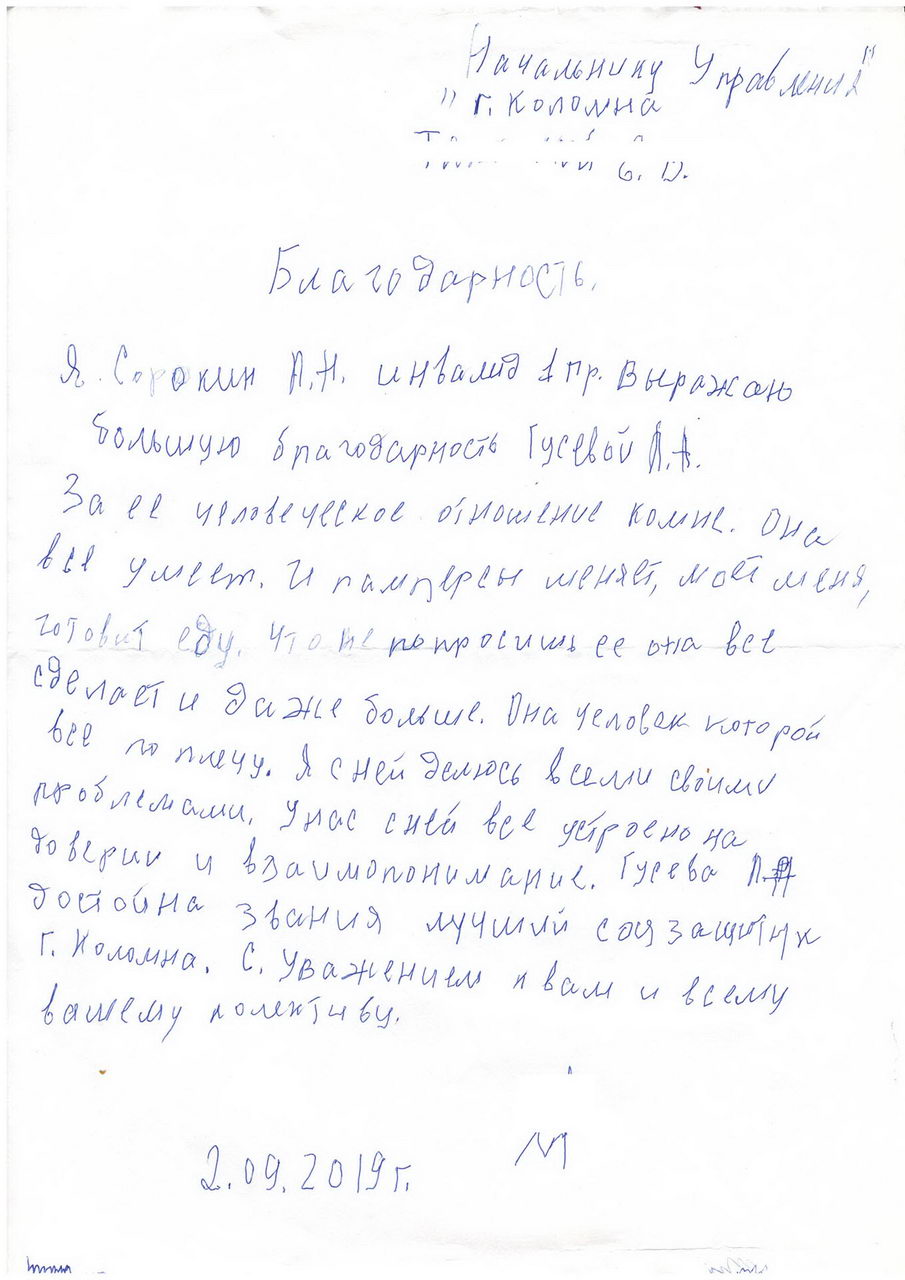 Начальнику Управления"
" г. Коломна
Благодарность.
Я. Сорокин А.Н. инвалид 1 гр. Выражаю
большую благодарность Гусевой Л.А.
За ее человеческое отношение комне. Она
все умеет. И памперсы меняет, моет меня,
готовит еду. Что не попросишь ее она все
сделает и даже больше. Она человек которой
все по плечу. Я с ней делюсь всеми своими
проблемами. У нас с ней все устроено на
доверии и взаимопонимание. Гусева Л.А
достойна звания лучший соц защитник
г. Коломна. С. Уважением к вам и всему
вашему колективу.
2.09.2019г.